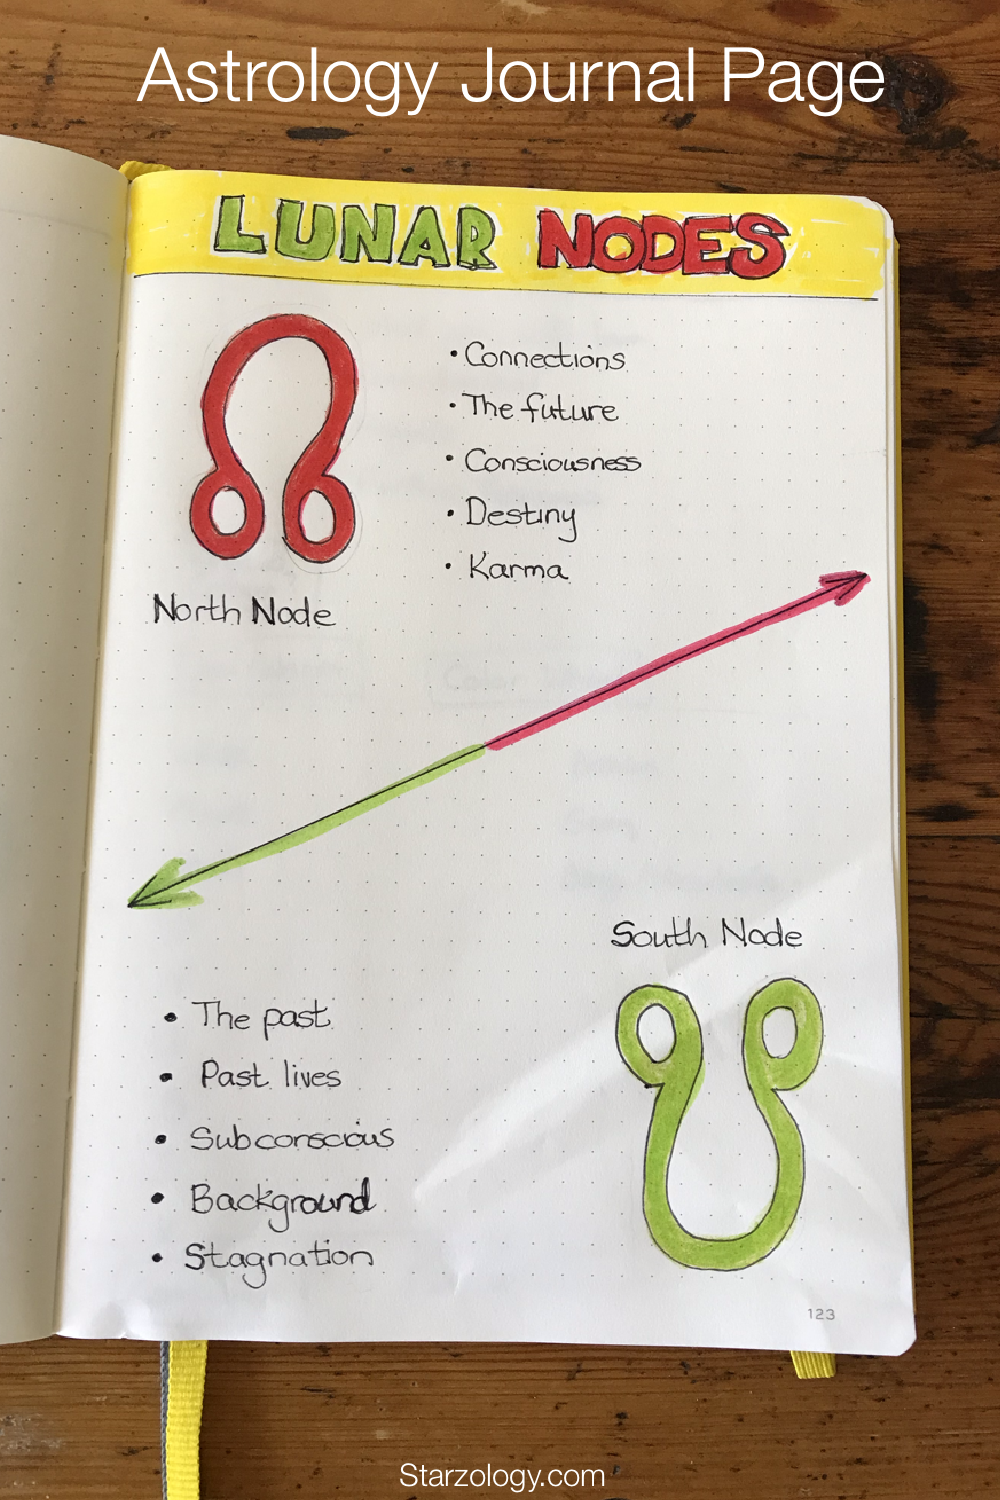 Astrology Journal Page
LUNAR NODES
• Connections
• The future
• Consciousness
• Destiny
• Karma
North Node
South Node
• The past
• Past lives
• Subconscious
• Background
• Stagnation
123
Starzology.com